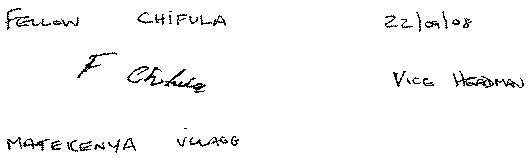 FELLOW CHIFULA 22/09/08
F Chifula VICE HEADMAN
MATEKENYA VILLAGE